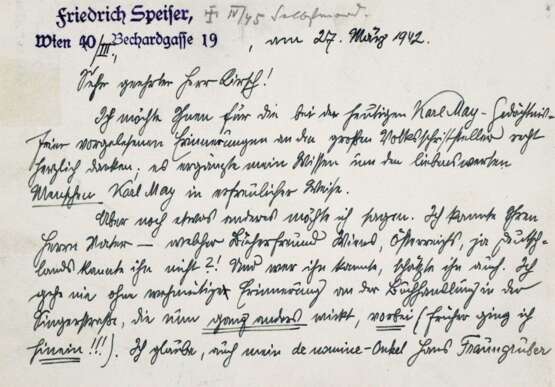 Friedrich Speiser, † IV/45 Selbstmord.
Wien 40/III., Bechardgasse 19, am 27. März 1942.
Sehr geehrter Herr Hirsch!
Ich möchte Ihnen für die bei der heutigen Karl May-Gedächtnis-
feier vorgelesenen Erinnerungen an den großen Volksschriftsteller recht
herzlich danken; es ergänzte mein Wissen um den liebenswerten
Menschen Karl May in erfreulicher Weise.
Aber noch etwas anderes möchte ich sagen. Ich kannte Ihren
Herrn Vater – welcher Bücherfreund Wiens, Österreichs, ja Deutsch-
lands kannte ihn nicht?! Und wer ihn kannte, schätzte ihn auch. Ich
gehe nie ohne wehmütige Erinnerung an der Buchhandlung in der
Singerstraße, die nun ganz anders wirkt, vorbei (früher ging ich
hinein!!!). Ich glaube, auch mein de nomine-Onkel Hans Fraungruber